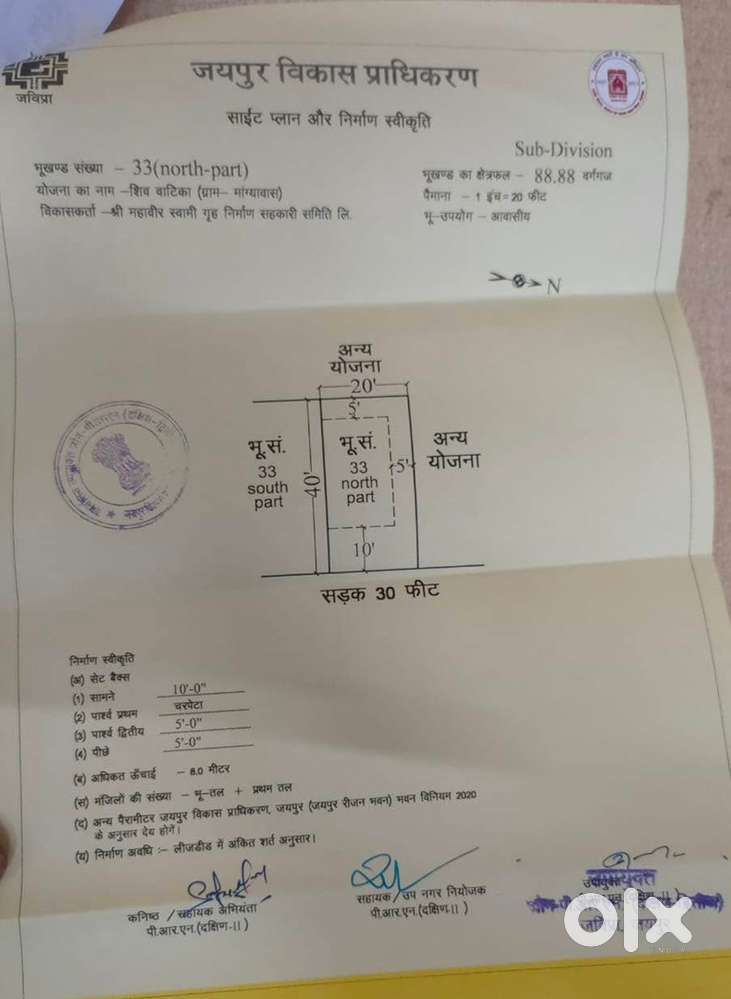 जयपुर विकास प्राधिकरण
जविप्रा
साईट प्लान और निर्माण स्वीकृति
Sub-Division
भूखण्ड संख्या - 33(north-part)
भूखण्ड का क्षेत्रफल - 88.88 वर्गगज
योजना का नाम -शिव वाटिका (ग्राम- मांग्यावास)
पैमाना - 1 इंच=20 फीट
विकासकर्ता -श्री महावीर स्वामी गृह निर्माण सहकारी समिति लि.
भू-उपयोग - आवासीय
N
अन्य
योजना
20'
5'
भू.सं.
33
south
part
40'
भू.सं.
33
north
part
5'
अन्य
योजना
10'
सड़क 30 फीट
निर्माण स्वीकृति
(अ) सेट बैक्स
(1) सामने 10'-0"
(2) पार्श्व प्रथम चस्पेटा
(3) पार्श्व द्वितीय 5'-0"
(4) पीछे 5'-0"
(ब) अधिकत ऊँचाई - 8.0 मीटर
(स) मंजिलों की संख्या - भू-तल + प्रथम तल
(द) अन्य पैरामीटर जयपुर विकास प्राधिकरण, जयपुर (जयपुर रीजन भवन) भवन विनियम 2020
के अनुसार देय होगें।
(य) निर्माण अवधि :- लीजडीड में अंकित शर्त अनुसार।
कनिष्ठ / सहायक अभियंता
पी.आर.एन.(दक्षिण-II)
सहायक/उप नगर नियोजक
पी.आर.एन.(दक्षिण-II)
उपायुक्त
olx
INDIA